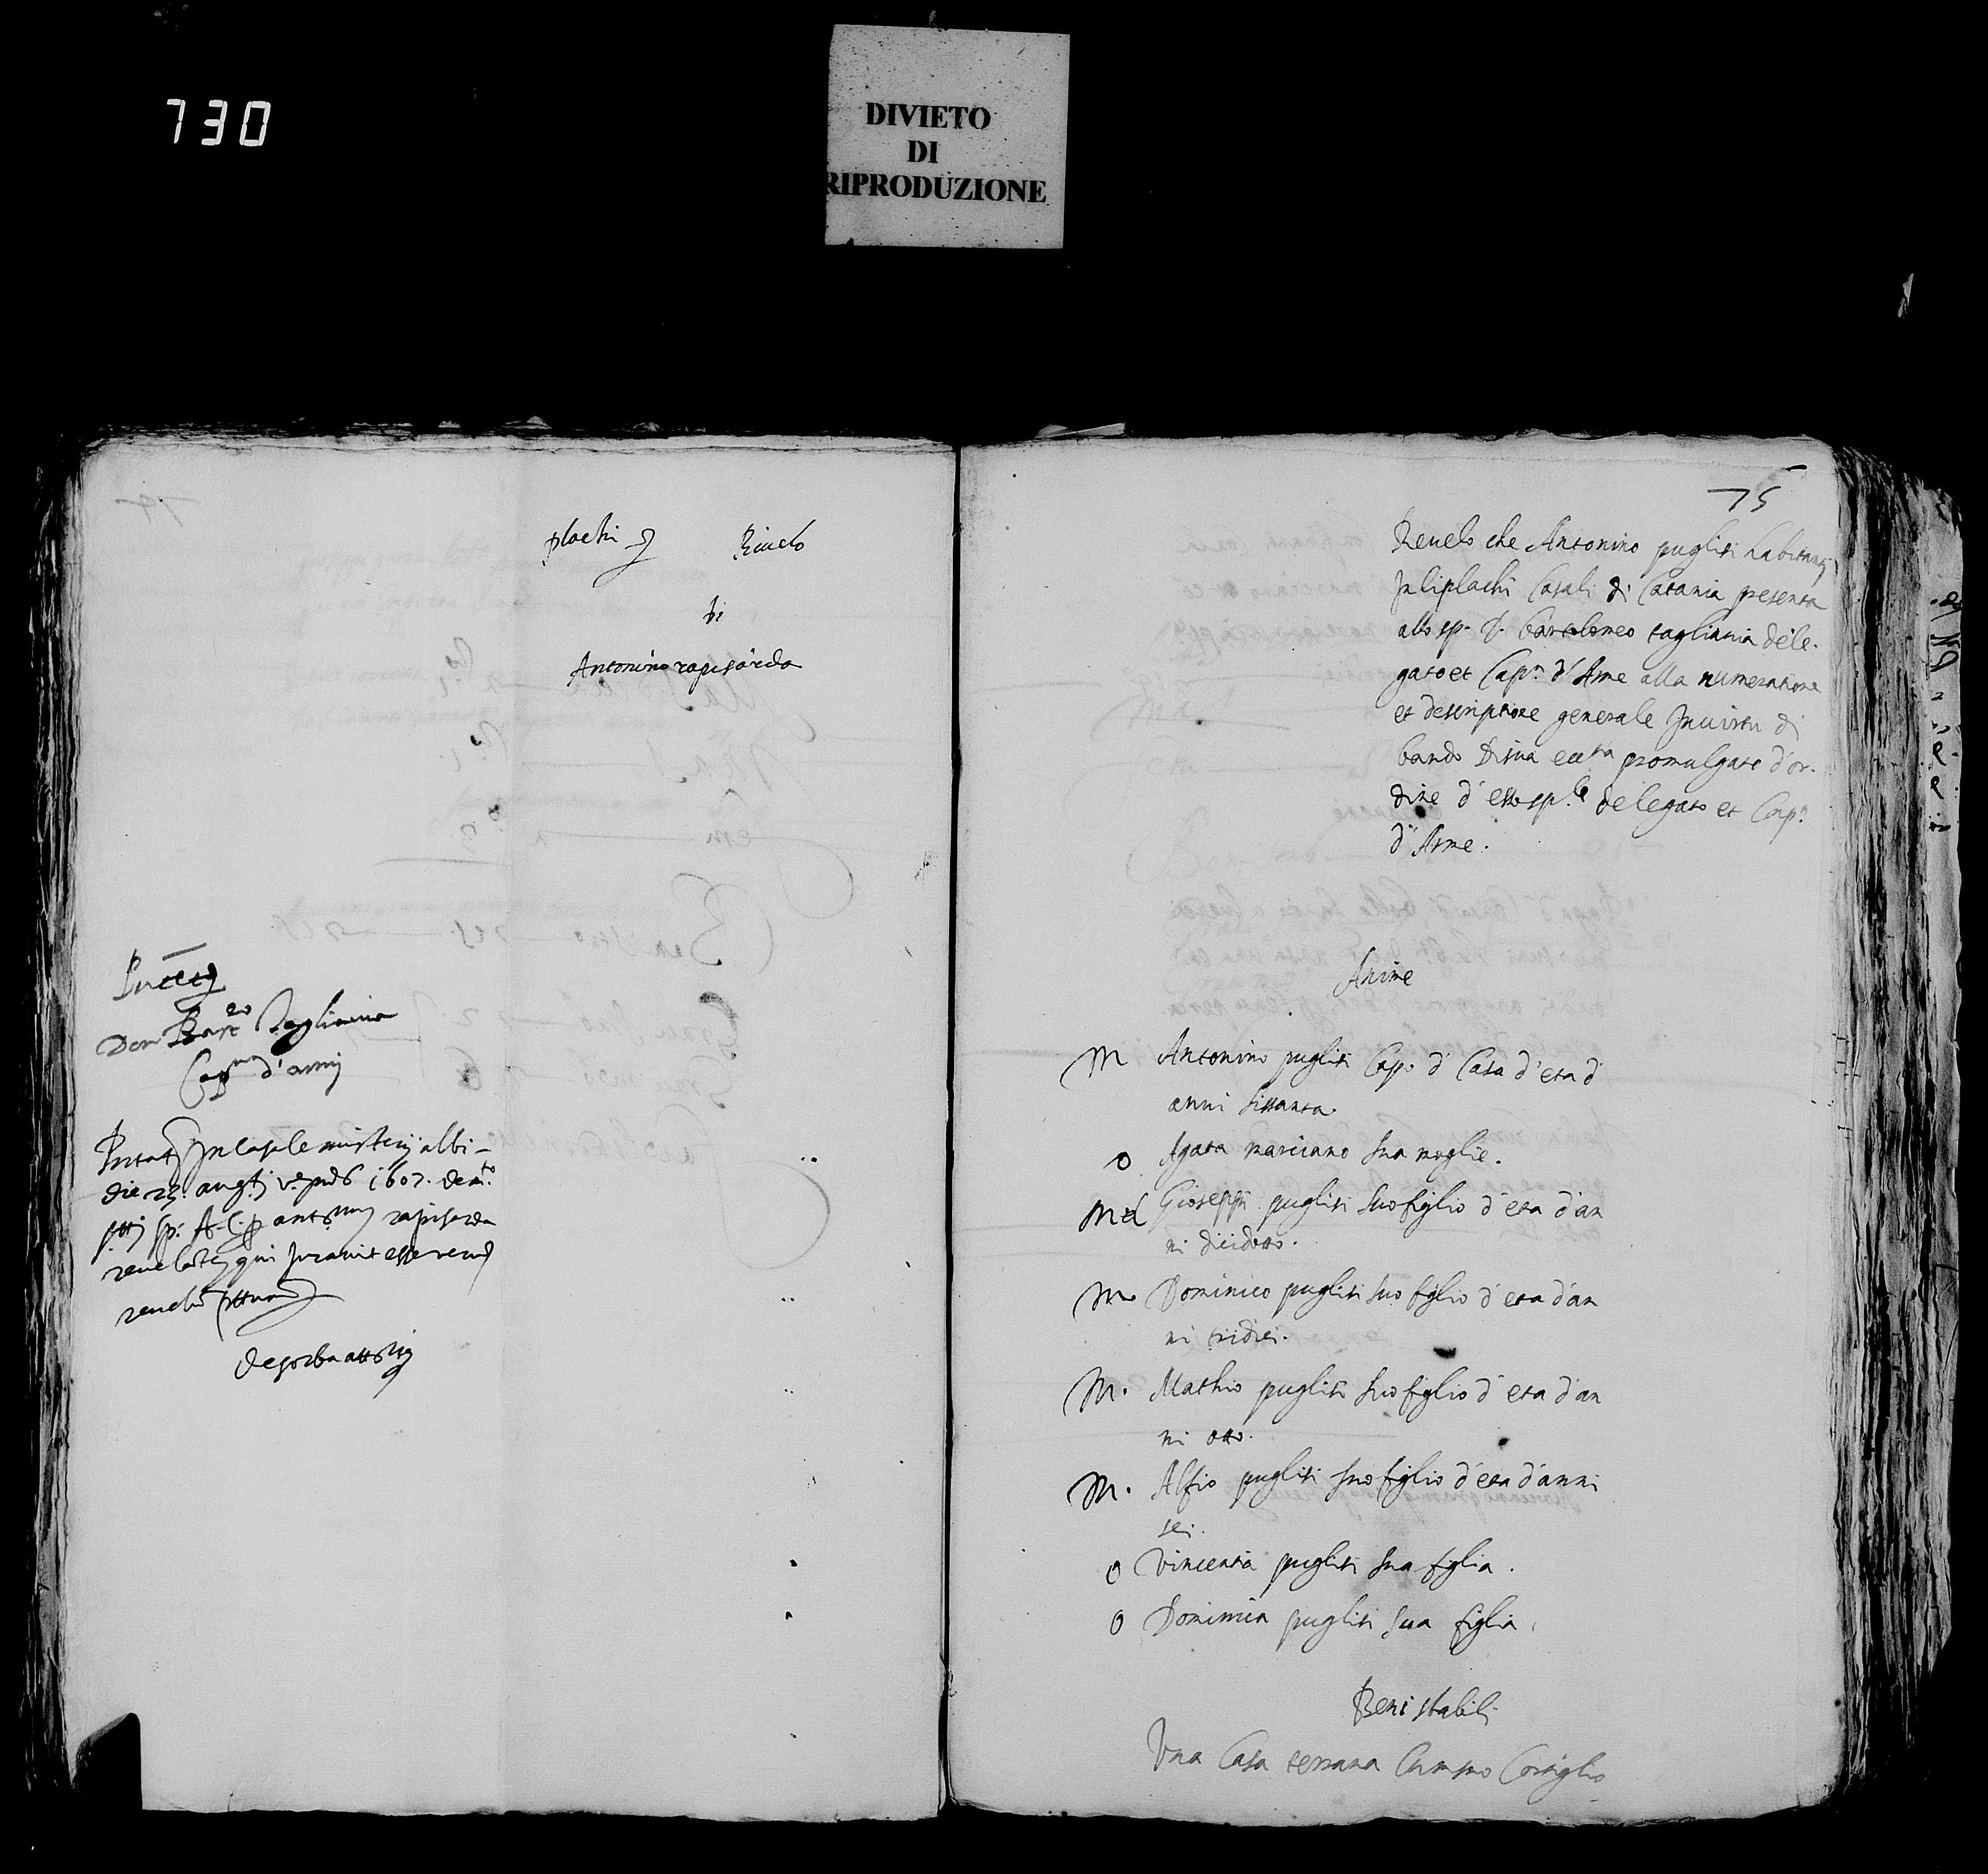 730
DIVIETO
DI
RIPRODUZIONE
plachi Rivelo
di
Antonino rapisarda
Don Bart.eo Tagliavia
Cap.no d'armi
In Casale misterij albi-
die 25 aug.ti 1607. de m.to
sp. A. C. p antoninu rapisarda
qui juravit esse veru
75
Revelo che Antonino puglisi habitanti
In li plachi Casali di Catania presenta
allo sp. D. bartolomeo tagliavia dele-
gato et Cap.n d'Arme alla numeratione
et descriptione generale In virtu di
bando di sua ecc.tia promulgato d'or-
dine d'esso sp.le delegato et Cap.n
d'Arme.
Anime
M Antonino puglisi Capo di Casa d'eta d
anni sissanta.
o Agata marciano sua moglie.
Md Gioseppi puglisi suo figlio d'eta d'an
ni dicidotto.
M Dominico puglisi suo figlio d'eta d'an
ni tridici.
M. Mathio puglisi suo figlio d'eta d'an
ni otto.
M. Alfio puglisi suo figlio d'eta d'anni
sei.
o Vincentia puglisi sua figlia.
o puglisi sua figlia.
Beni stabili
Una Casa terrana Cortiglio